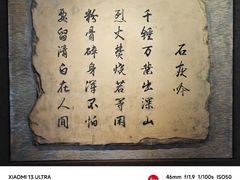 石灰吟
千锤万凿出深山
烈火焚烧若等闲
粉骨碎身浑不怕
要留清白在人间
XIAOMI 13 ULTRA
46mm f/1.9 1/100s ISO50